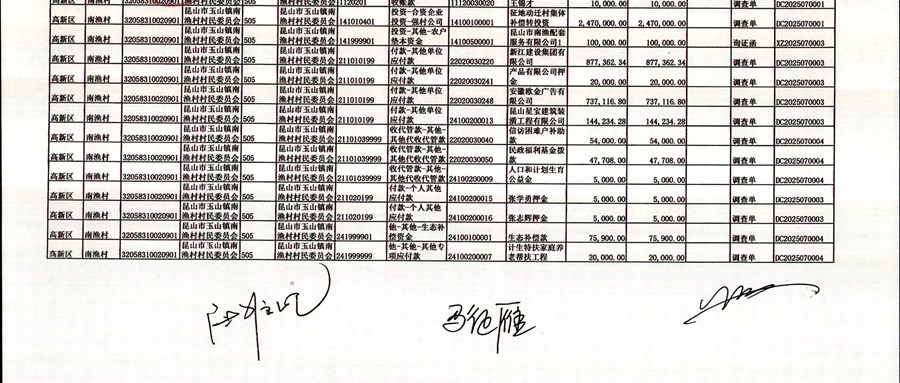 高新区 南渔村 32058310020901 渔村村民委员会 505 渔村村民委员会 1120201 收账款 11120030020 王锡才 10,000.00 10,000.00 调查单 DC2025070001
高新区 南渔村 32058310020901 昆山市玉山镇南渔村村民委员会 505 昆山市玉山镇南渔村村民委员会 141010401 投资-合资企业投资-强村公司 14100100001 征地动迁村集体补偿转投资 2,470,000.00 2,470,000.00 调查单 DC2025070001
高新区 南渔村 32058310020901 昆山市玉山镇南渔村村民委员会 505 昆山市玉山镇南渔村村民委员会 141999901 投资-其他-农户垫本资金 14100500001 昆山市南渔配套服务有限公司1 100,000.00 100,000.00 询证函 XZ2025070003
高新区 南渔村 32058310020901 昆山市玉山镇南渔村村民委员会 505 昆山市玉山镇南渔村村民委员会 211010199 付款-其他单位应付款 22020030220 新江建设集团有限公司 877,362.34 877,362.34 调查单 DC2025070003
高新区 南渔村 32058310020901 昆山市玉山镇南渔村村民委员会 505 昆山市玉山镇南渔村村民委员会 211010199 付款-其他单位应付款 22020030241 产品有限公司押金 20,000.00 20,000.00 调查单 DC2025070003
高新区 南渔村 32058310020901 昆山市玉山镇南渔村村民委员会 505 昆山市玉山镇南渔村村民委员会 211010199 付款-其他单位应付款 22020030248 安徽欧金广告有限公司 737,116.80 737,116.80 调查单 DC2025070003
高新区 南渔村 32058310020901 昆山市玉山镇南渔村村民委员会 505 昆山市玉山镇南渔村村民委员会 211010199 付款-其他单位应付款 24100200013 昆山星宝建筑装潢工程有限公司 144,234.28 144,234.28 调查单 DC2025070003
高新区 南渔村 32058310020901 昆山市玉山镇南渔村村民委员会 505 昆山市玉山镇南渔村村民委员会 21101039999 收代管款-其他-其他代收代管款 22020030040 信访困难户补助款 54,000.00 54,000.00 调查单 DC2025070004
高新区 南渔村 32058310020901 昆山市玉山镇南渔村村民委员会 505 昆山市玉山镇南渔村村民委员会 21101039999 收代管款-其他-其他代收代管款 22020030050 民政福利基金拨款 47,708.00 47,708.00 调查单 DC2025070004
高新区 南渔村 32058310020901 昆山市玉山镇南渔村村民委员会 505 昆山市玉山镇南渔村村民委员会 21101039999 收代管款-其他-其他代收代管款 24100200009 人口和计划生育公益金 5,000.00 5,000.00 调查单 DC2025070004
高新区 南渔村 32058310020901 昆山市玉山镇南渔村村民委员会 505 昆山市玉山镇南渔村村民委员会 211020199 付款-个人其他应付款 24100200015 张学勇押金 5,000.00 5,000.00 调查单 DC2025070003
高新区 南渔村 32058310020901 昆山市玉山镇南渔村村民委员会 505 昆山市玉山镇南渔村村民委员会 211020199 付款-个人其他应付款 24100200016 张志辉押金 5,000.00 5,000.00 调查单 DC2025070003
高新区 南渔村 32058310020901 昆山市玉山镇南渔村村民委员会 505 昆山市玉山镇南渔村村民委员会 241999901 他-其他-生态补偿资金 24100100001 生态补偿款 75,900.00 75,900.00 调查单 DC2025070004
高新区 南渔村 32058310020901 昆山市玉山镇南渔村村民委员会 505 昆山市玉山镇南渔村村民委员会 241999999 他-其他-其他专项应付款 24100200007 计生特扶家庭养老帮扶工程 20,000.00 20,000.00 调查单 DC2025070004